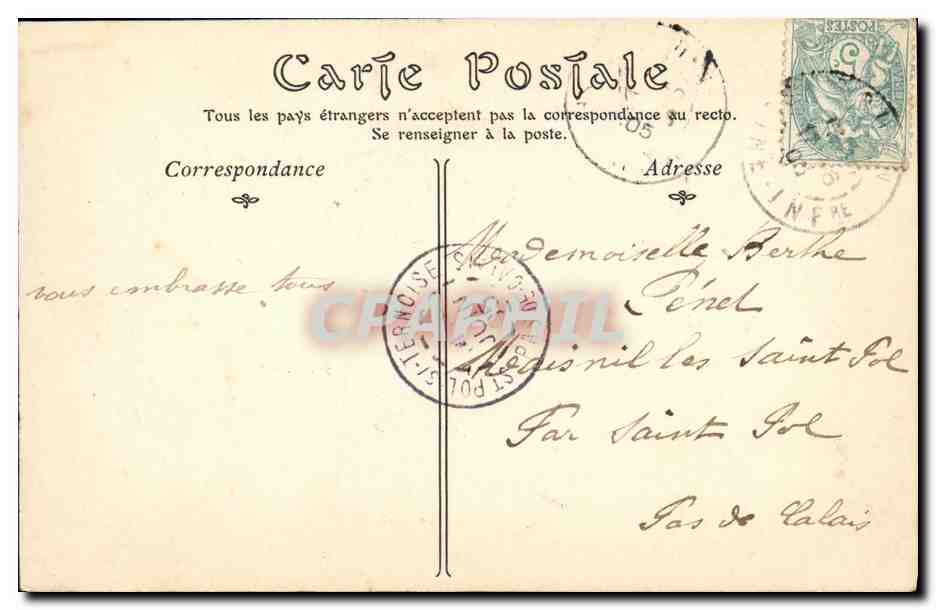 Carte Postale
Tous les pays étrangers n'acceptent pas la correspondance au recto.
Se renseigner à la poste.
Correspondance
Adresse
POSTES
5
05
INFRE
vous embrasse tous
Mademoiselle Berthe
Pénel
Maisnil les Saint Pol
Par Saint Pol
Pas de Calais
ST POL S/-TERNOISE
CPAPHIL